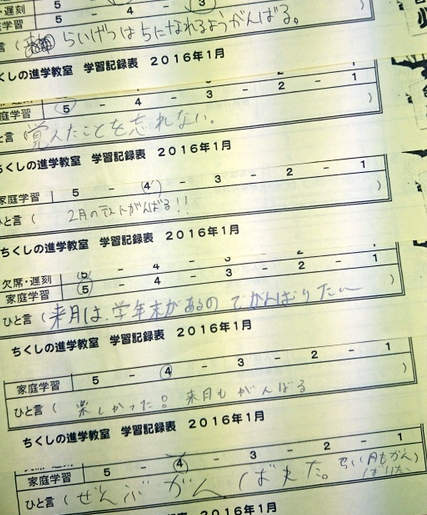 ・遅刻 5 - 4 - 3
学習
言 ( らいげつは5になれるようがんばる。
ちくしの進学教室 学習記録表 2016年1月
5 - 4 - 3 - 2 - 1
ひと言 ( 覚えたことを忘れない。 )
ちくしの進学教室 学習記録表 2016年1月
家庭学習 5 - 4 - 3 - 2 - 1
ひと言 ( 2月のテストがんばる!! )
ちくしの進学教室 学習記録表 2016年1月
欠席・遅刻 5 - 4 - 3 - 2 - 1
家庭学習 5 - 4 - 3 - 2 - 1
ひと言 ( 来月は、学年末があるのでがんばりたい )
ちくしの進学教室 学習記録表 2016年1月
家庭学習 5 - 4 - 3 - 2 - 1
ひと言 ( 楽しかった。来月もがんばる )
ちくしの進学教室 学習記録表 2016年1月
家庭学習 5 - 4 - 3 - 2 - 1
ひと言 ( ぜんぶがんばれた。らい月もがんばりたい )
学習記録表 2016年1月